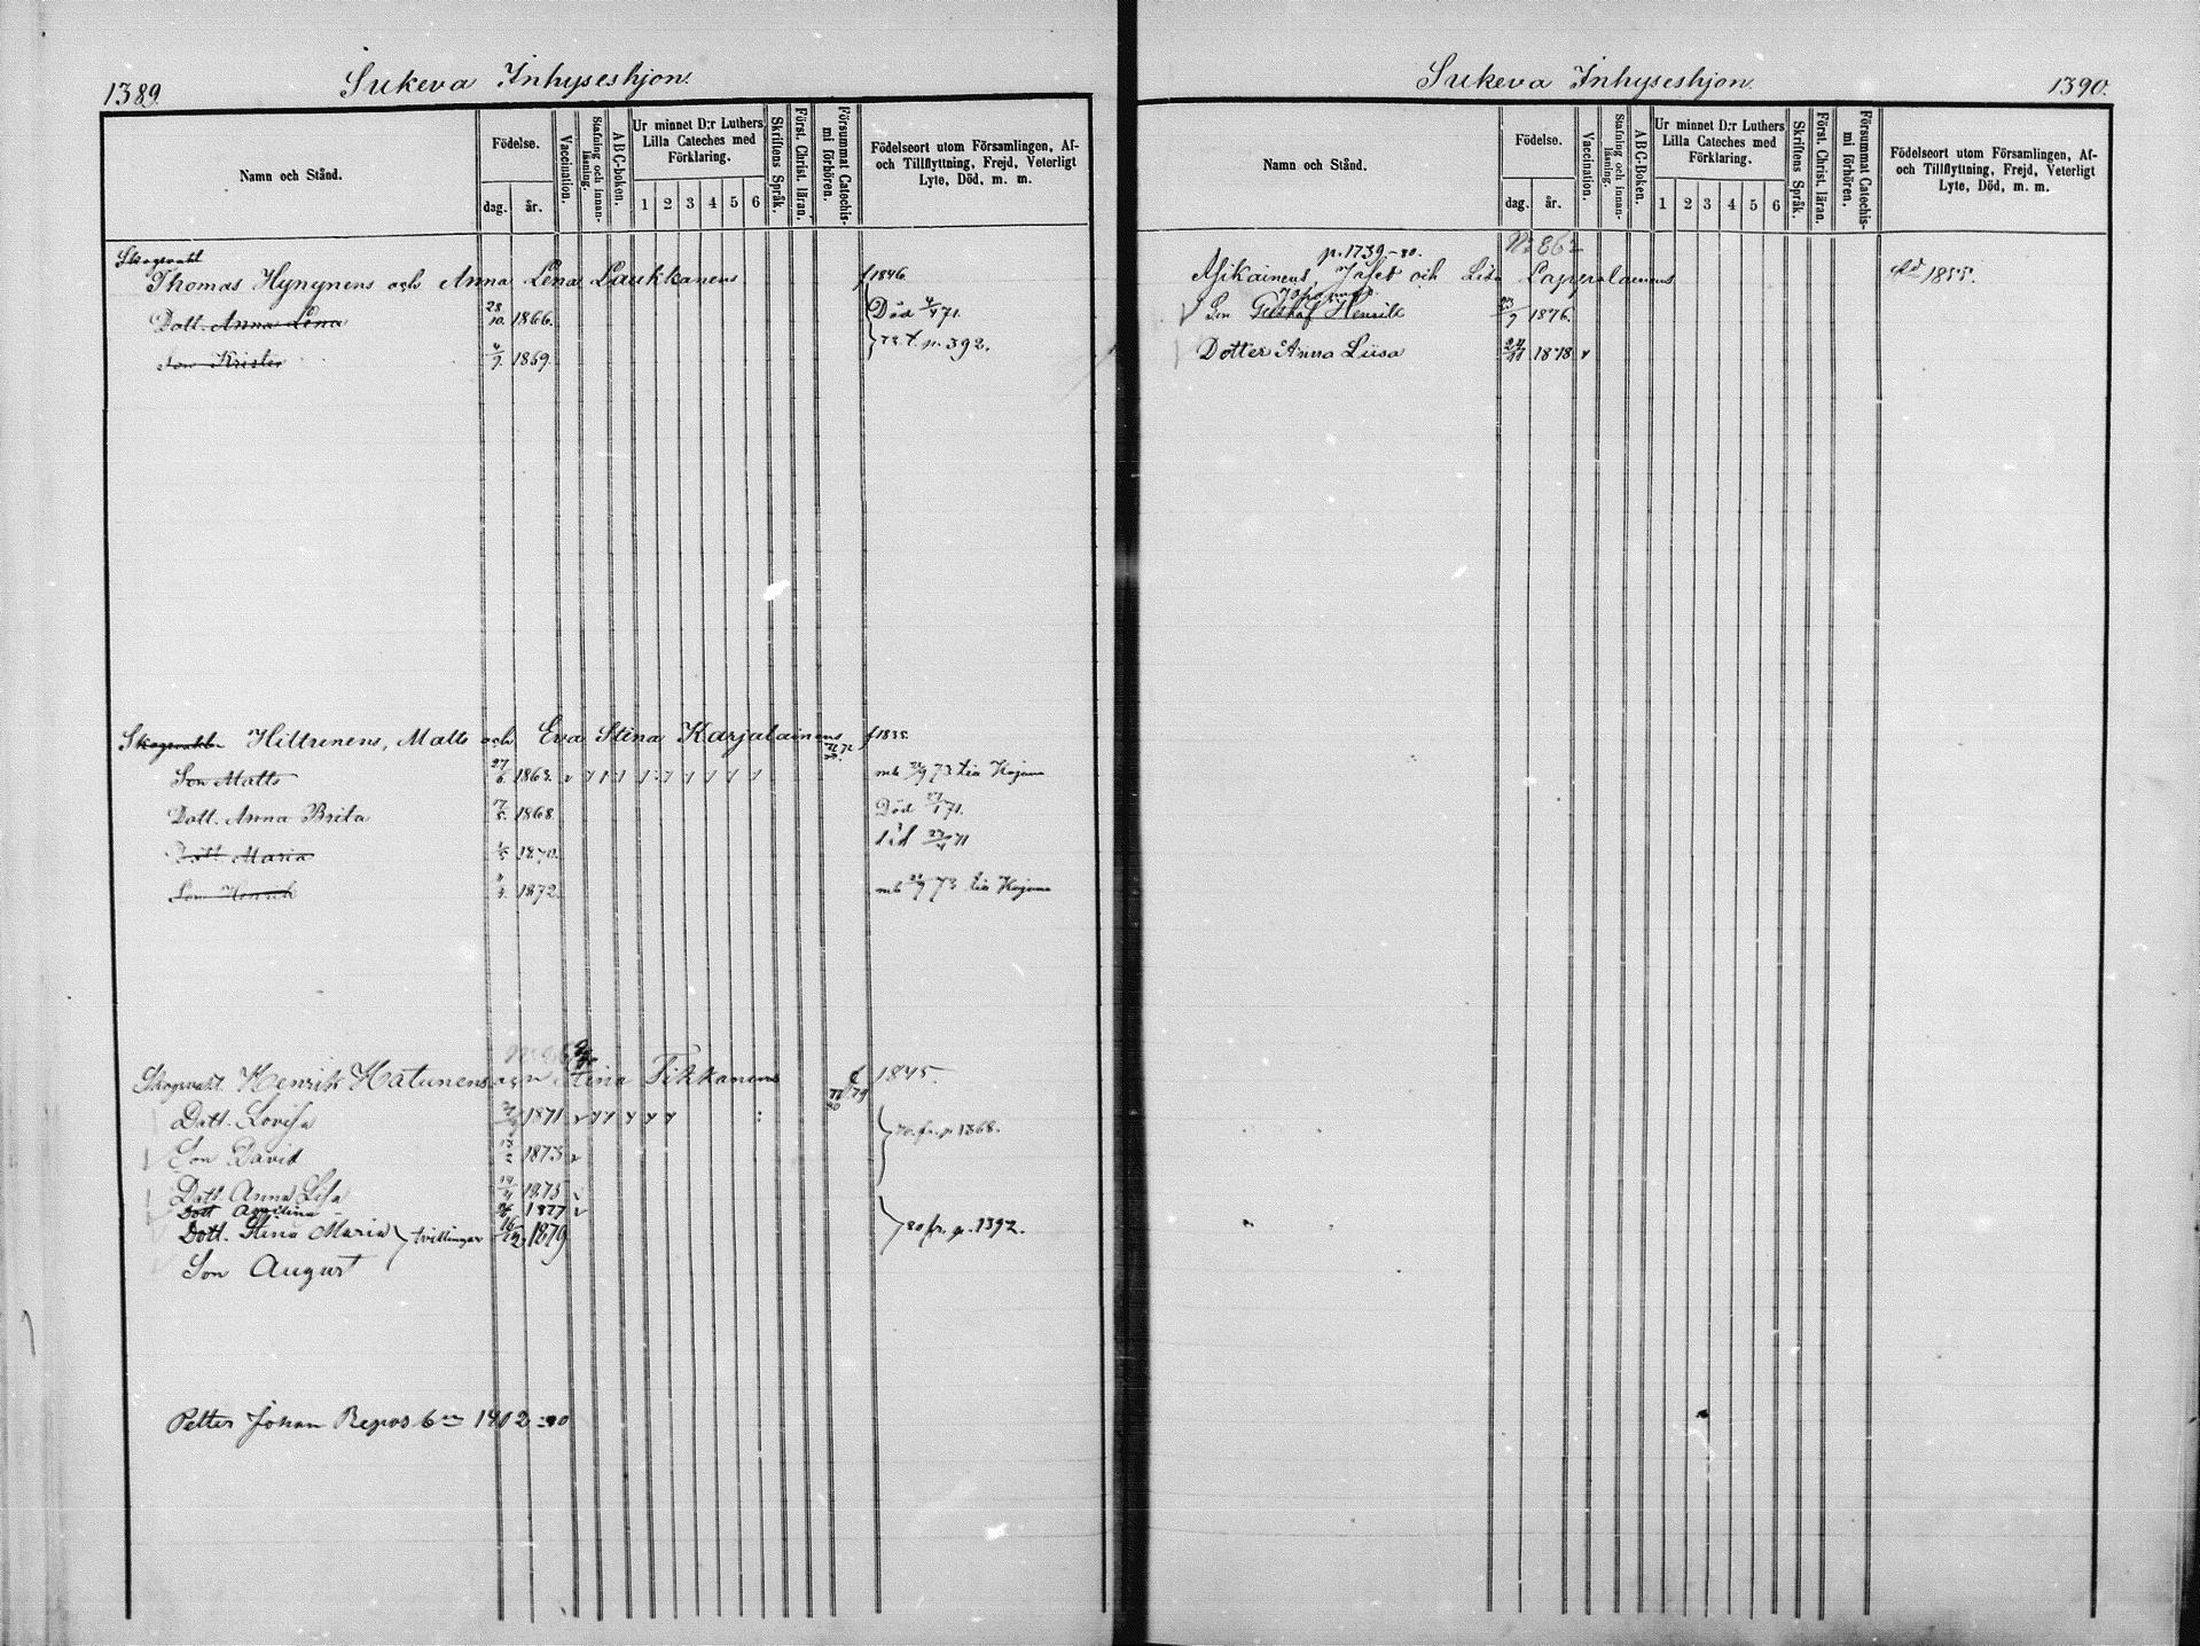 1389.
Sukeva Inhyseshjon.
Namn och Stånd.
Födelse.
dag. år.
Vaccination.
Stafning och innan-
läsning.
ABC-boken.
Ur minnet D:r Luthers
Lilla Cateches med
Förklaring.
1 2 3 4 5 6
Skriftens Språk.
Först. Christ. läran.
Försummat Catechis-
mi förhören.
Födelseort utom Församlingen, Af-
och Tillflyttning, Frejd, Veterligt
Lyte, Död, m. m.
Skogsvakt
Thomas Hynynens och Anna Lena Laukkanens f 1846.
Dott. Anna Lena 28/10. 1866. Död 4/4 71.
Son Krister 4/9. 1869. 72 t. p. 392.
Hiltunens, Matts och Eva Stina Karjalainens f 1835
Son Matts 27/6. 1863. 73 till Kajana
Dott. Anna Brita 17/5. 1868 Död 71.
Dott. Maria 1870. död 71
Son Henrik 1872. 73 till Kajana
Skogsvakt. Henrik Hätunens och Stina Tikkanens 1845.
Dott. Lovisa 1871 fr. p. 1368.
Son David 13/2 1873
Dott. Anna Lisa 1875
Dott 1877
Dott. Stina Maria } tvillingar 16/12 1879 80 fr. p. 1392.
Son August
Petter Johan Repos 1402-80
Sukeva Inhyseshjon.
1390.
Namn och Stånd.
Födelse.
dag. år.
Vaccination.
Stafning och innan-
läsning.
ABC-Boken.
Ur minnet D:r Luthers
Lilla Cateches med
Förklaring.
1 2 3 4 5 6
Skriftens Språk.
Först. Christ. läran.
Försummat Catechis-
mi förhören.
Födelseort utom Församlingen, Af-
och Tillflyttning, Frejd, Veterligt
Lyte, Död, m. m.
p. 1739.-80.
Asikainens, Jafet och Lisa Lappalainens 1855.
Son Gustaf Henrik 23/9 1876.
Dotter Anna Liisa 24/11 1878